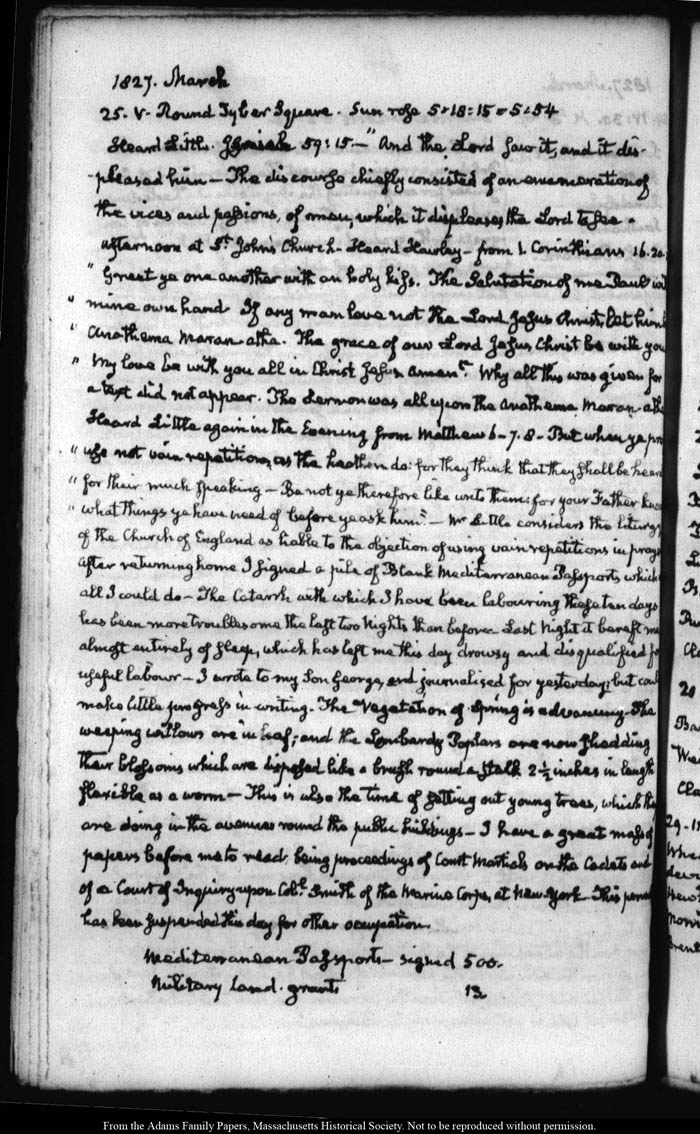 1827. March
25. V. Round Tyber Square. Sun rose 5:18:15 = 5:54
Heard Little. Isaiah 59:15 — "And the Lord saw it, and it dis-
-pleased him — The discourse chiefly consisted of an enumeration of
the vices and passions, of men, which it displeases the Lord to see.
afternoon at St. John's Church. Heard Hawley — from 1. Corinthians 16.20
" Greet ye one another with an holy kiss. The Salutation of me Paul wi
" mine own hand If any man love not the Lord Jesus Christ, let him
" Anathema Maran-atha. The grace of our Lord Jesus Christ be with you
" My love be with you all in Christ Jesus amen". Why all this was given for
a text did not appear. The Sermon was all upon the Anathema Maran-ath
Heard Little again in the Evening from Matthew 6-7.8 - But when ye pra
" use not vain repetitions, as the heathen do: for they think that they shall be hear
" for their much speaking — Be not ye therefore like unto them: for your Father know
" what things ye have need of before ye ask him". — Mr Little considers the liturgy
of the Church of England as liable to the objection of using vain repetitions in pray
After returning home I signed a pile of Blank Mediterranean Passports which
all I could do — The Catarrh with which I have been labouring these ten days
has been more troublesome the last two Nights than before. Last Night it bereft me
almost entirely of sleep, which has left me this day drowsy and disqualified fo
useful labour — I wrote to my Son George, and journalised for yesterday; but coul
make little progress in writing. The Vegetation of Spring is advancing. The
weeping willows are in leaf; and the Lombardy Poplars are now shedding
their blossoms which are disposed like a brush round a stalk 2½ inches in length
flexible as a worm — This is also the time of setting out young trees, which the
are doing in the avenues round the public buildings — I have a great mass of
papers before me to read. being proceedings of Court Martials on the Cadets and
of a Court of Inquiry upon Coll. Smith of the Marine Corps, at New-York. This perus
has been suspended this day for other occupation.
Mediterranean Passports — signed 500.
Military land-grants 12
From the Adams Family Papers, Massachusetts Historical Society. Not to be reproduced without permission.